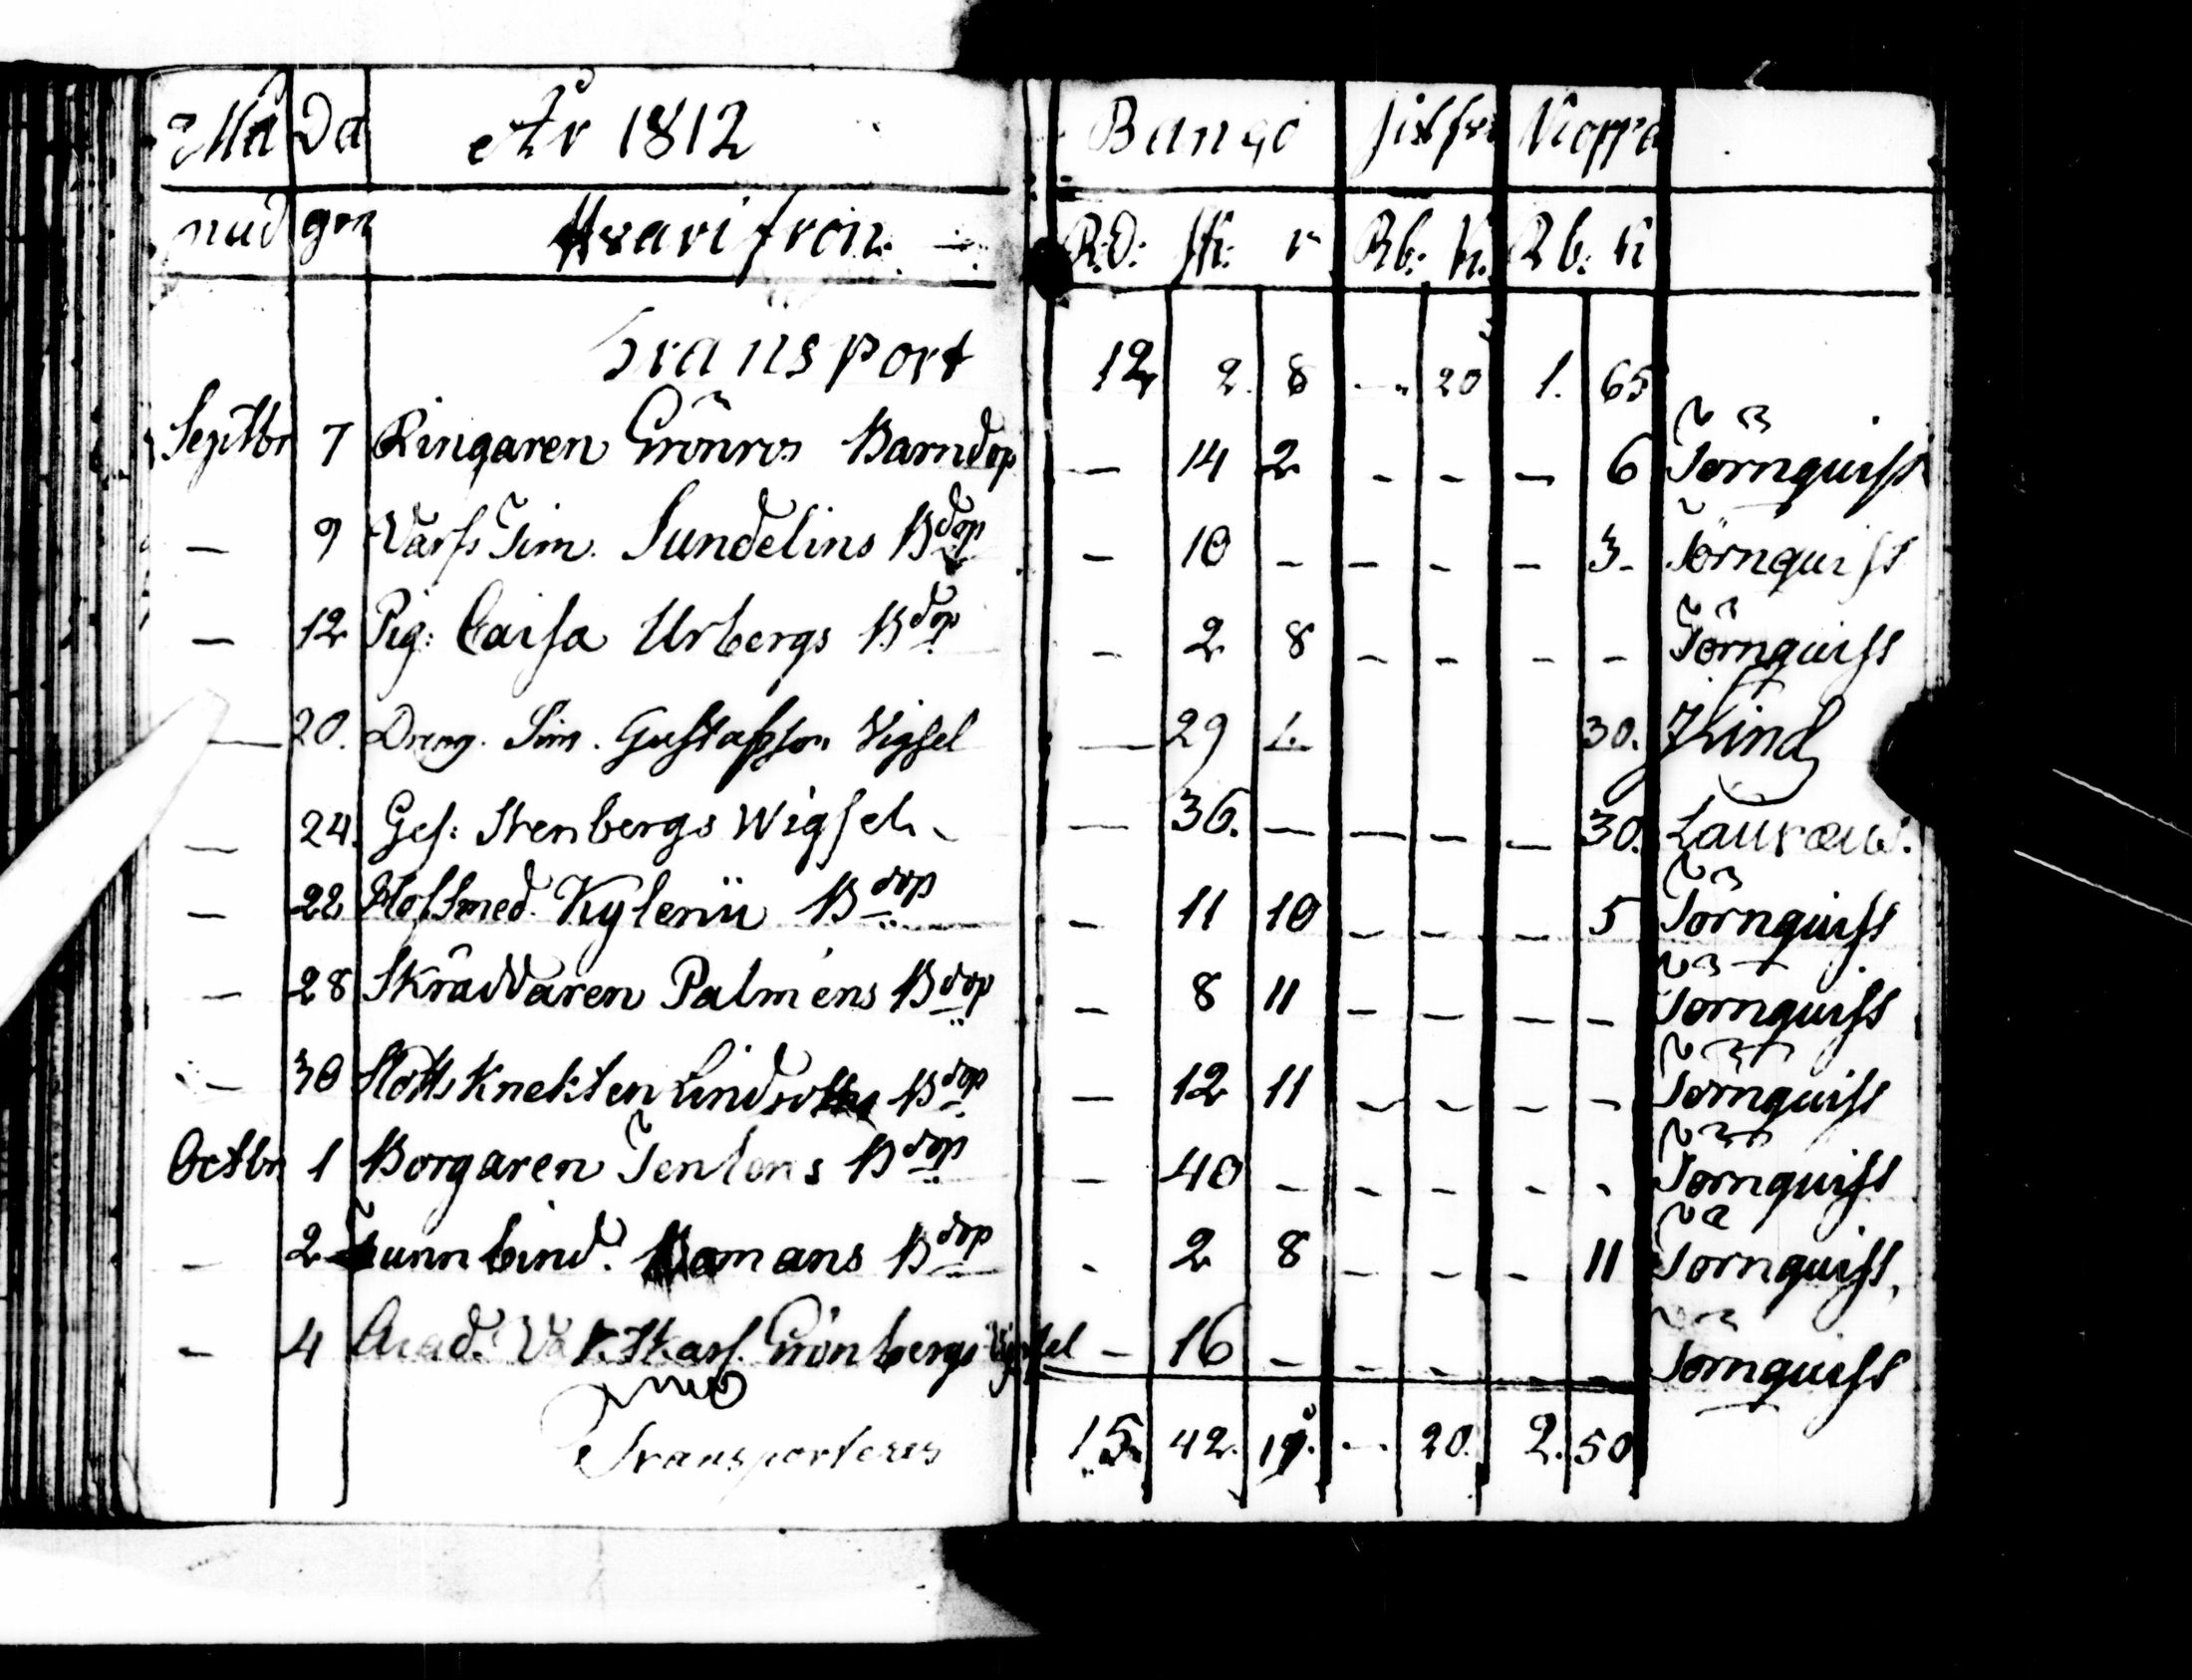 Må Da År 1812 Banco silfver Koppar
nad gar Hvarifrån. R:d: sk: r Rb: K. Rb: K
Transport 12 2. 8 - 20 1. 65
Septbr 7 Ringaren Grönros Barndop — 14 2 - - — 6 Törnquist
— 9 Varfs Tim. Sundelins Bdop — 10 - - - - 3 Törnquist
— 12 Pig: Caisa Urbergs Bdop — 2 8 - - - - Törnquist
— 20. Dreng. Sim. Gustafsson Vigsel — 29 1. 30. Kind
— 24. Ges: Stenbergs Wigsel — 36. — — - — 30. Lauraeus.
— 22 Hofsmed. Kylenii Bdop — 11 10 - - - 5 Törnquist
— 28 Skräddaren Palmens Bdop — 8 11 - - - - Törnquist
— 30 Slotts Knekten Bdop — 12 11 - - - - Törnquist
Octbr 1 Borgaren Tenlens Bdop — 40 - - - - - Törnquist
— 2 Tunnbind. Bomans Bdop - 2 8 - - - 11 Törnquist
- 4 Acad. Grönbergs Vigsel - 16 - - - - - Törnquist
Transporteres 15. 42. - 20. 2. 50